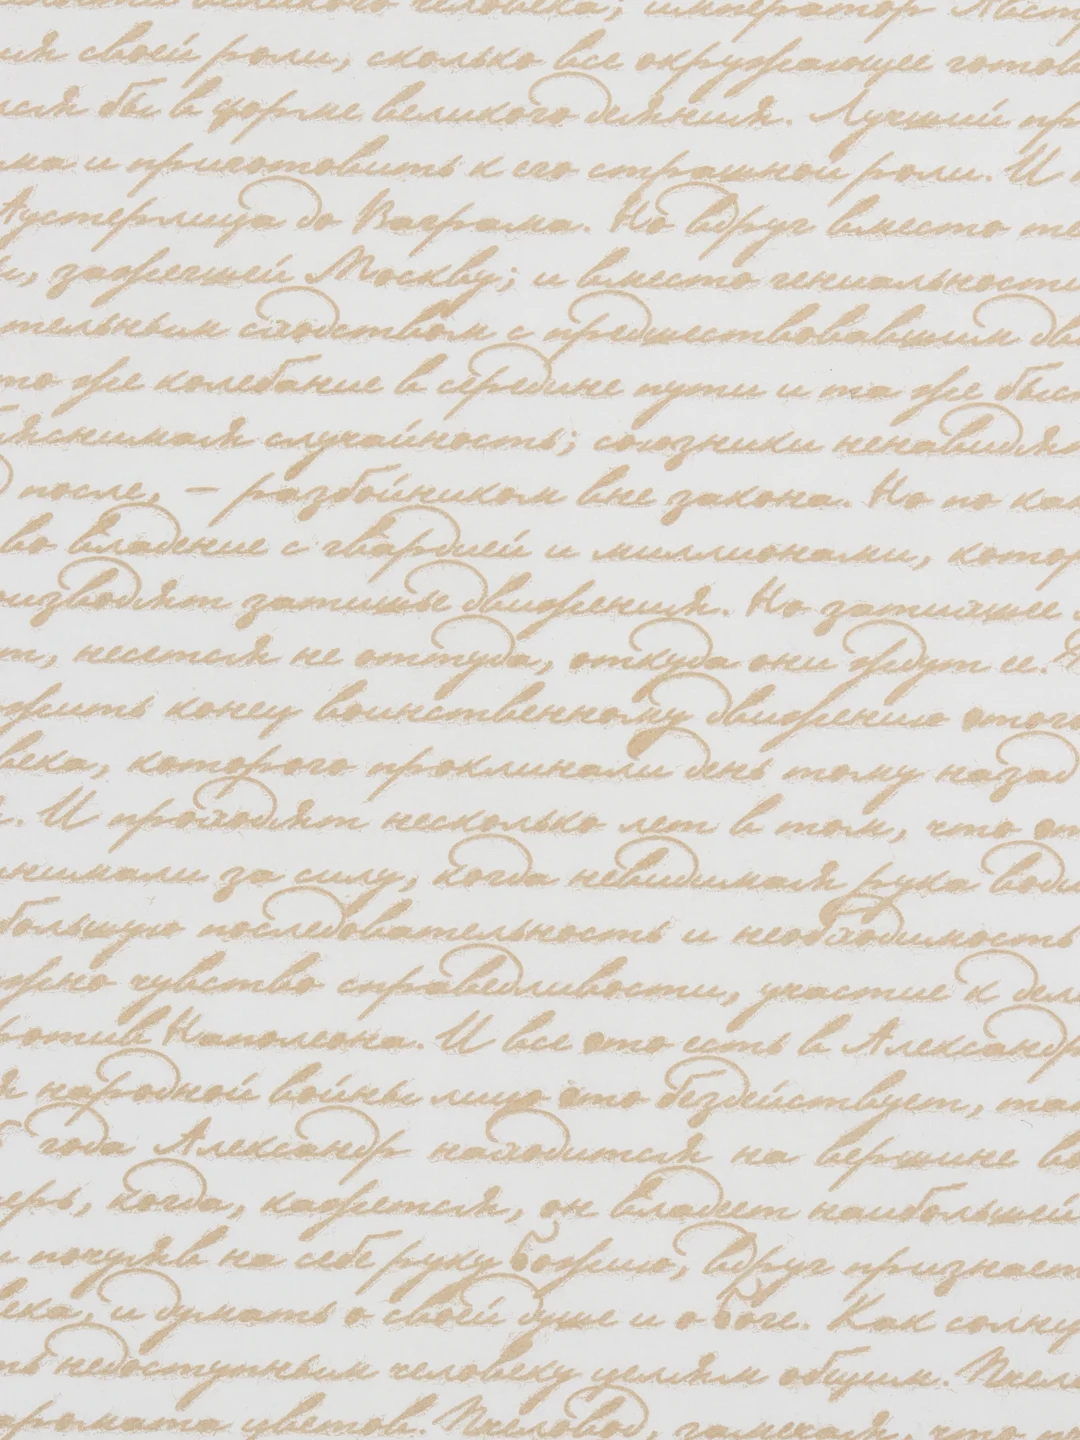 великого человека; император Австр
ия своей роли, сколько все окружающее готов
лся бы в форме великого деяния. Лучший пр
ма и приготовить к его страшной роли. И
Аустерлица до Ваграма. Но вдруг вместо те
и, зажегшей Москву; и вместо гениальности
тельным сходством с предшествовавшим дви
то же колебание в середине пути и та же быст
яснимая случайность; союзники ненавидят
после, — разбойником вне закона. Но по как
во владение с гвардией и миллионами, котор
оизводят затишье движения. Но затихшее
т, несется не оттуда, откуда они ждут ее.
ожить конец воинственному движению этого
века, которого проклинали день тому назад
. И проходят несколько лет в том, что эт
нимали за силу, когда невидимая рука води
большую последовательность и необходимость
жно чувство справедливости, участие к дела
ротив Наполеона. И все это есть в Александр
я народной войны лицо это бездействует, так
года Александр находится на вершине во
перь, когда, кажется, он владеет наибольшей
и почуяв на себе руку божию, вдруг признает
века, и думать о своей душе и о боге. Как солнц
ть недоступным человеку целям общим. Пчела
аромата цветов. Пчеловод, замечая, что пч